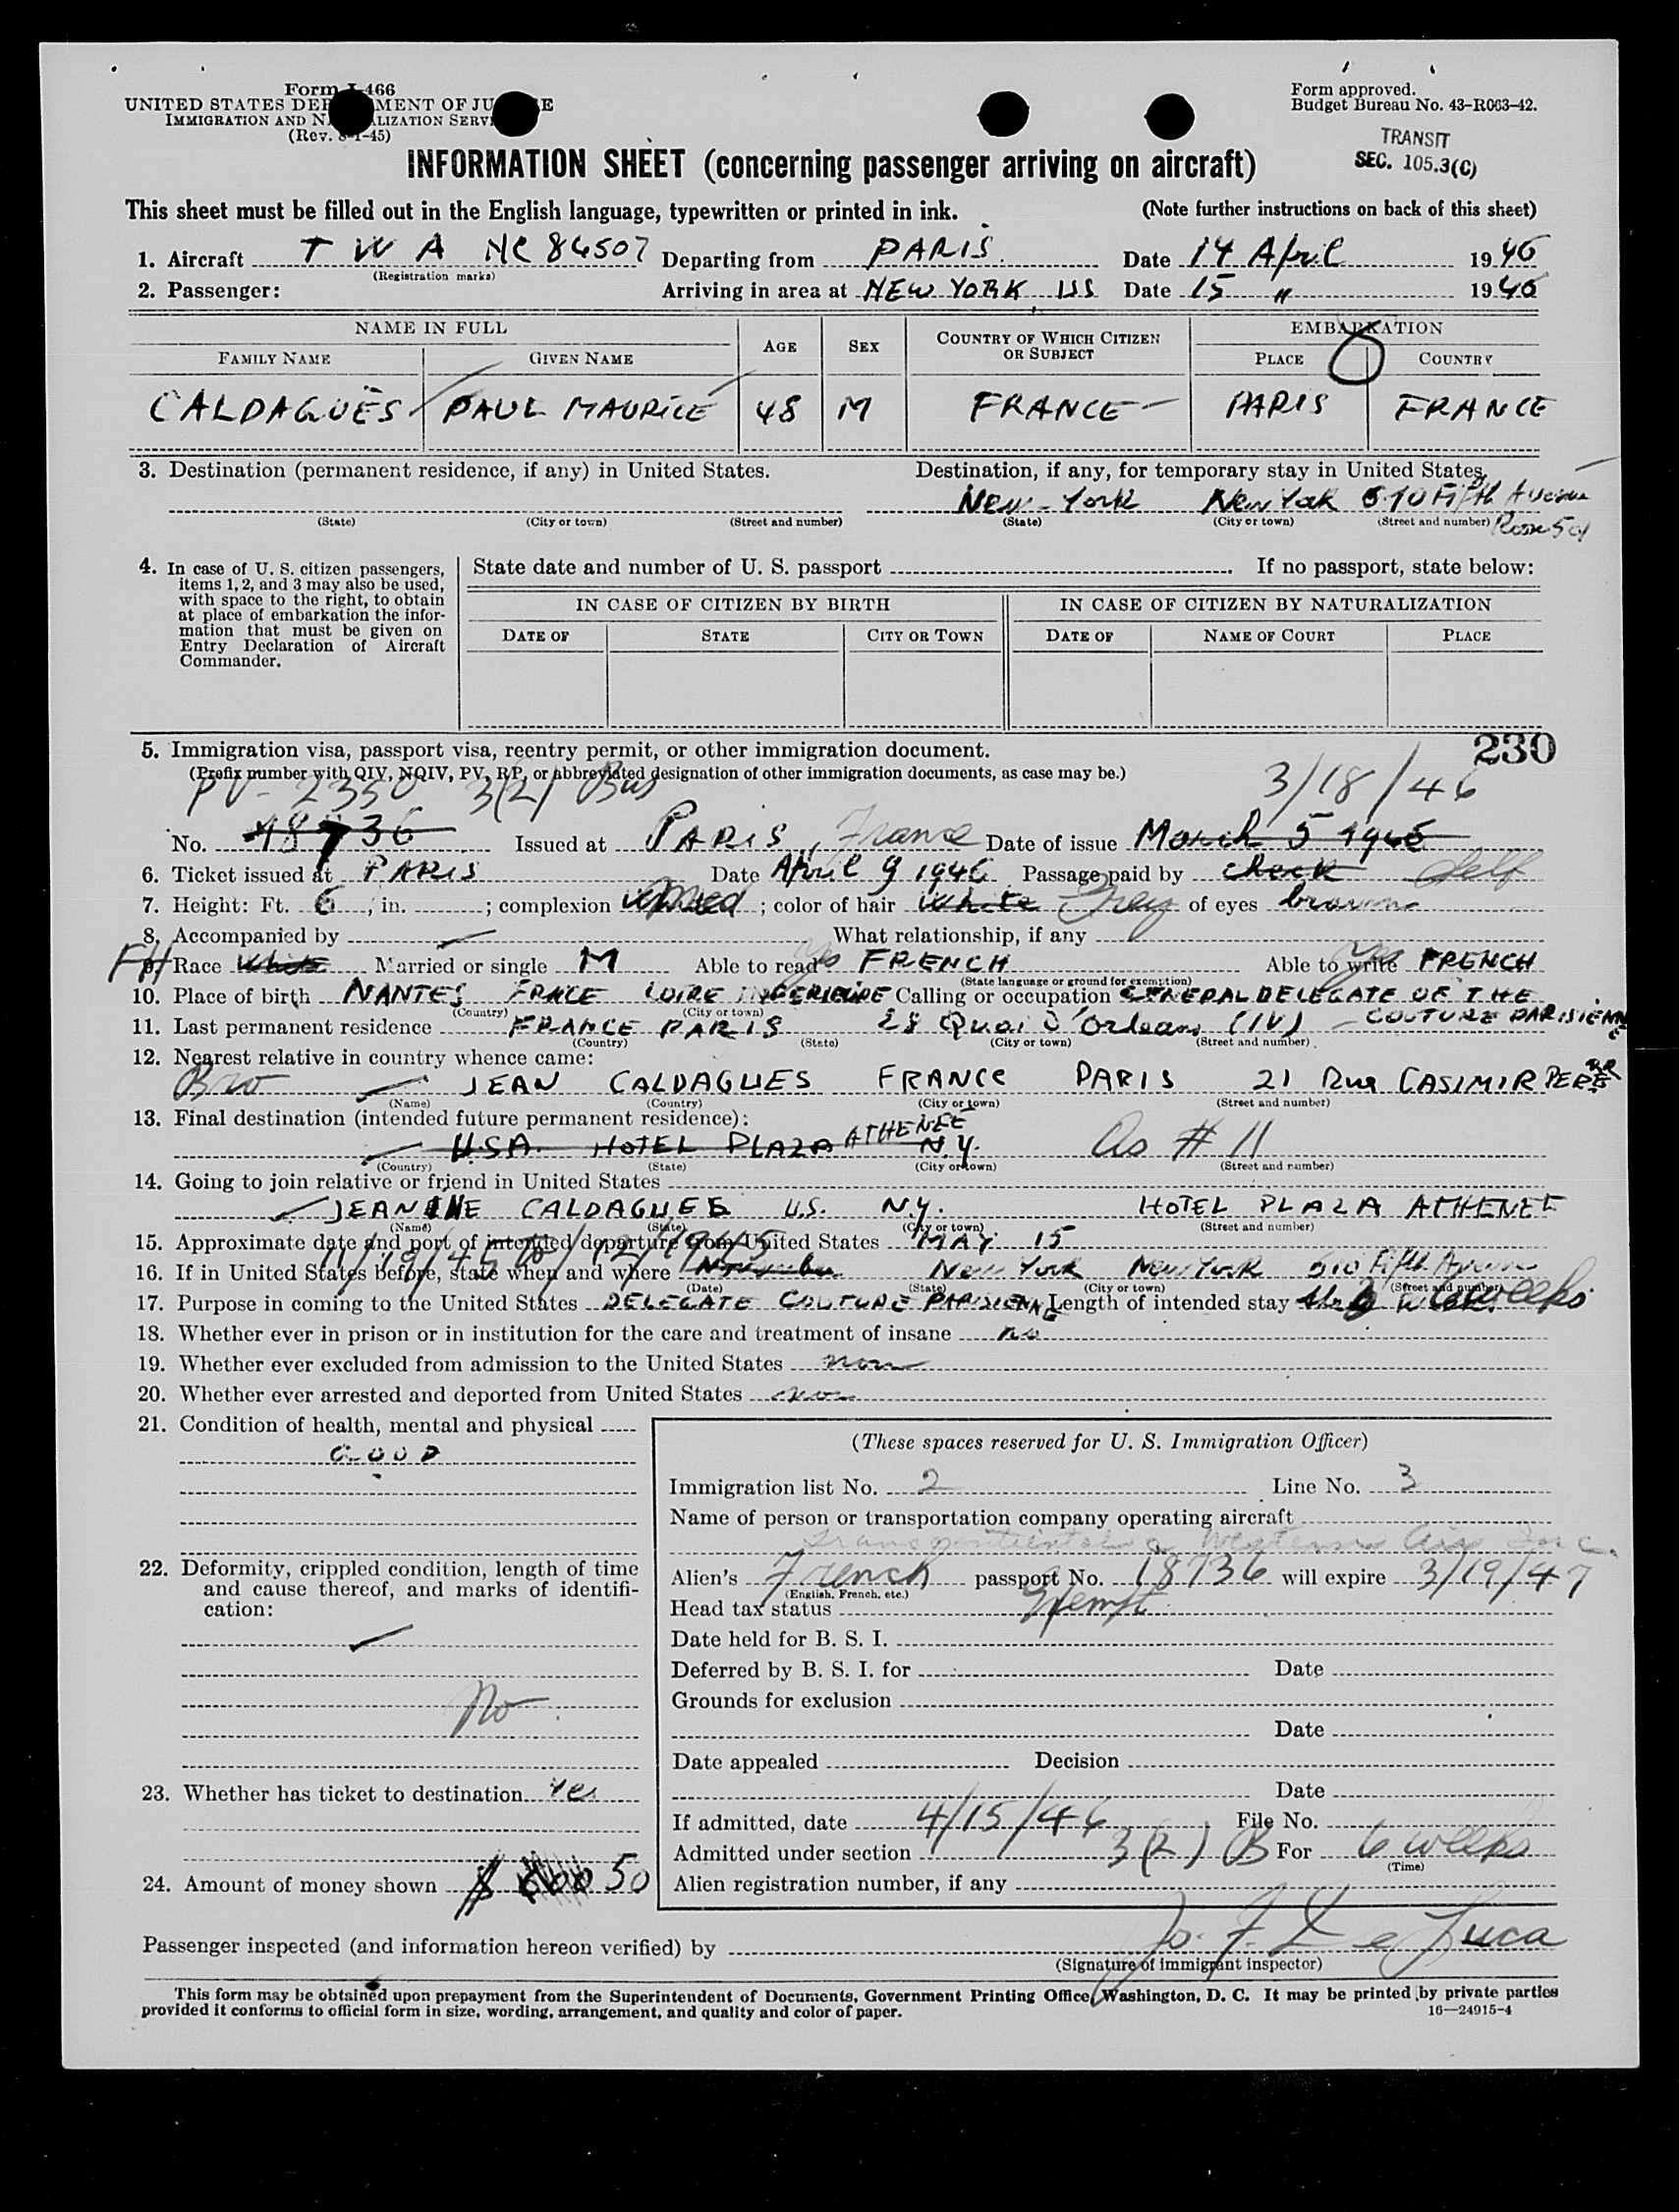 Form I-466
UNITED STATES DEPARTMENT OF JUSTICE
IMMIGRATION AND NATURALIZATION SERVICE
(Rev. 8-1-45)
Form approved.
Budget Bureau No. 43-R063-42.
TRANSIT
SEC. 105.3(C)
INFORMATION SHEET (concerning passenger arriving on aircraft)
This sheet must be filled out in the English language, typewritten or printed in ink. (Note further instructions on back of this sheet)
1. Aircraft TWA NC 86507 Departing from PARIS Date 14 April 1946
(Registration marks)
2. Passenger: Arriving in area at NEW YORK, US Date 15 " 1946
NAME IN FULL AGE SEX COUNTRY OF WHICH CITIZEN OR SUBJECT EMBARKATION
FAMILY NAME GIVEN NAME PLACE COUNTRY
CALDAGUÈS PAUL MAURICE 48 M FRANCE PARIS FRANCE
3. Destination (permanent residence, if any) in United States. Destination, if any, for temporary stay in United States.
New-York New York 610 Fifth Avenue
(State) (City or town) (Street and number) (State) (City or town) (Street and number) Room 501
4. In case of U. S. citizen passengers, items 1, 2, and 3 may also be used, with space to the right, to obtain at place of embarkation the information that must be given on Entry Declaration of Aircraft Commander.
State date and number of U. S. passport If no passport, state below:
IN CASE OF CITIZEN BY BIRTH IN CASE OF CITIZEN BY NATURALIZATION
DATE OF STATE CITY OR TOWN DATE OF NAME OF COURT PLACE
230
5. Immigration visa, passport visa, reentry permit, or other immigration document.
(Prefix number with QIV, NQIV, PV, RP, or abbreviated designation of other immigration documents, as case may be.)
PV-2350 3(2) Bus 3/18/46
No. 18736 Issued at PARIS, France Date of issue March 5 1946
6. Ticket issued at PARIS Date April 9 1946 Passage paid by check Self
7. Height: Ft. 6, in. ; complexion Med ; color of hair White Grey of eyes brown
8. Accompanied by — What relationship, if any
FH
9. Race White Married or single M Able to read yes FRENCH Able to write yes FRENCH
(State language or ground for exemption)
10. Place of birth NANTES FRACE LOIRE INFERIEURE Calling or occupation GENERAL DELEGATE OF THE
(Country) (City or town) COUTURE PARISIENNE
11. Last permanent residence FRANCE PARIS 28 Quai d'Orleans (IV)
(Country) (State) (City or town) (Street and number)
12. Nearest relative in country whence came:
Bro JEAN CALDAGUES FRANCE PARIS 21 Rue CASIMIR PERIER
(Name) (Country) (City or town) (Street and number)
13. Final destination (intended future permanent residence):
U.S.A. HOTEL PLAZA ATHENEE N.Y. As # 11
(Country) (State) (City or town) (Street and number)
14. Going to join relative or friend in United States
JEANINE CALDAGUES U.S. N.Y. HOTEL PLAZA ATHENEE
(Name) (State) (City or town) (Street and number)
15. Approximate date and port of intended departure from United States MAY 15
11/19/45 to 12/1945
16. If in United States before, state when and where November New York New York 610 Fifth Avenue
(Date) (State) (City or town) (Street and number)
17. Purpose in coming to the United States DELEGATE COUTURE PARISIENNE Length of intended stay 6 weeks
18. Whether ever in prison or in institution for the care and treatment of insane no
19. Whether ever excluded from admission to the United States non
20. Whether ever arrested and deported from United States non
21. Condition of health, mental and physical
GOOD
22. Deformity, crippled condition, length of time and cause thereof, and marks of identification:
No
23. Whether has ticket to destination Yes
24. Amount of money shown $ 50
(These spaces reserved for U. S. Immigration Officer)
Immigration list No. 2 Line No. 3
Name of person or transportation company operating aircraft
Transcontinental & Western Air Inc.
Alien's French passport No. 18736 will expire 3/19/47
(English, French, etc.)
Head tax status Exempt
Date held for B. S. I.
Deferred by B. S. I. for Date
Grounds for exclusion
Date
Date appealed Decision
Date
If admitted, date 4/15/46 File No.
Admitted under section 3(2) B For 6 weeks
(Time)
Alien registration number, if any
Passenger inspected (and information hereon verified) by Jo. F. De Luca
(Signature of immigrant inspector)
This form may be obtained upon prepayment from the Superintendent of Documents, Government Printing Office, Washington, D. C. It may be printed by private parties
provided it conforms to official form in size, wording, arrangement, and quality and color of paper. 16—24915-4